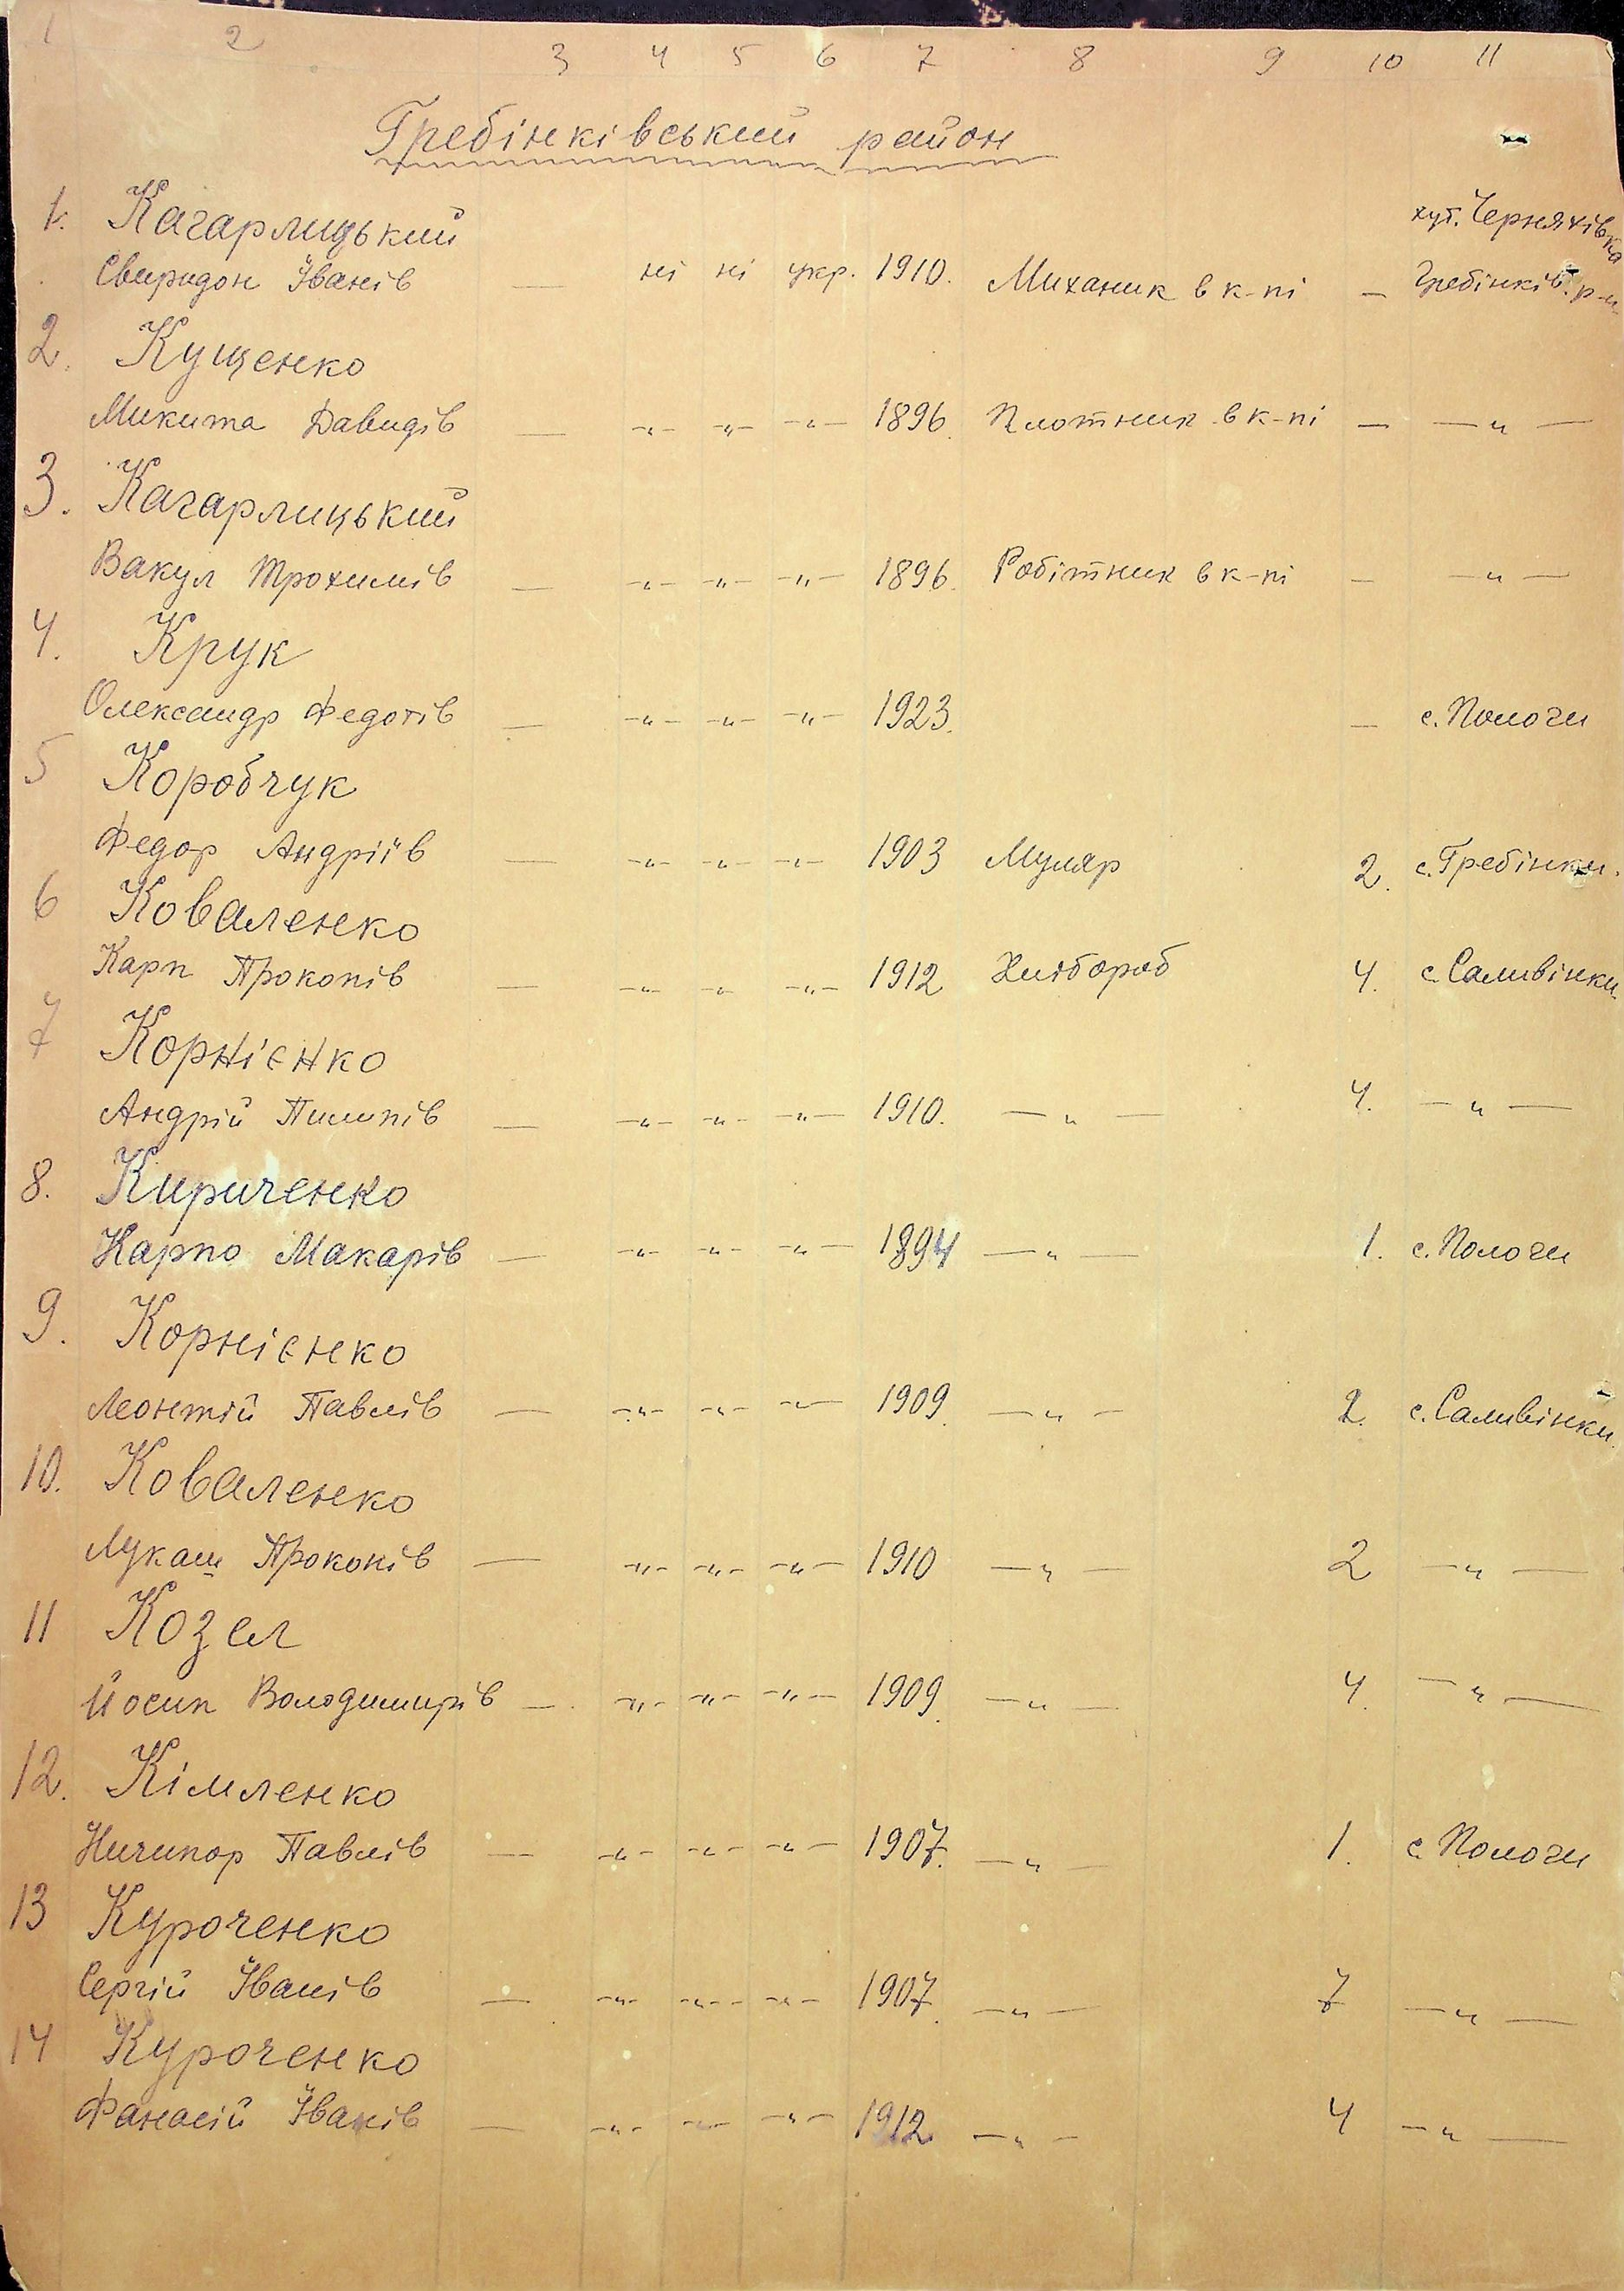 1 2 3 4 5 6 7 8 9 10 11
Гребінківський район
1. Кагарлицький хут. Черняхівка
Свиридон Іванів — ні ні укр. 1910. Миханик в к-пі — Гребінків. р-н
2. Кущенко
Микита Давидів — -"- -"- -"- 1896. Плотник в к-пі — — " —
3. Кагарлицький
Вакул Трохимів — -"- -"- -"- 1896. Робітник в к-пі — — " —
4. Крук
Олександр Федотів — -"- -"- -"- 1923. — с. Пологи
5 Коробчук
Федор Андріїв — -"- -"- -"- 1903 Муляр 2. с. Гребінки.
6 Коваленко
Карп Прокопів — -"- -"- -"- 1912 Хлібороб 4. с. Саливінки.
7 Корнієнко
Андрій Пилипів — -"- -"- -"- 1910. — " — 4. — " —
8. Кириченко
Карпо Макарів — -"- -"- -"- 1894 — " — 1. с. Пологи
9. Корнієнко
Леонтій Павлів — -"- -"- -"- 1909. — " — 2. с. Саливінки.
10. Коваленко
Лукаш Прокопів — -"- -"- -"- 1910 — " — 2 — " —
11 Козел
Йосип Володимирів — -"- -"- -"- 1909. — " — 4. — " —
12. Кімленко
Ничипор Павлів — -"- -"- -"- 1907. — " — 1. с. Пологи
13 Куроченко
Сергій Іванів — -"- -"- -"- 1907. — " — 7 — " —
14 Куроченко
Фанасій Іванів — -"- -"- -"- 1912 — " — 4 — " —